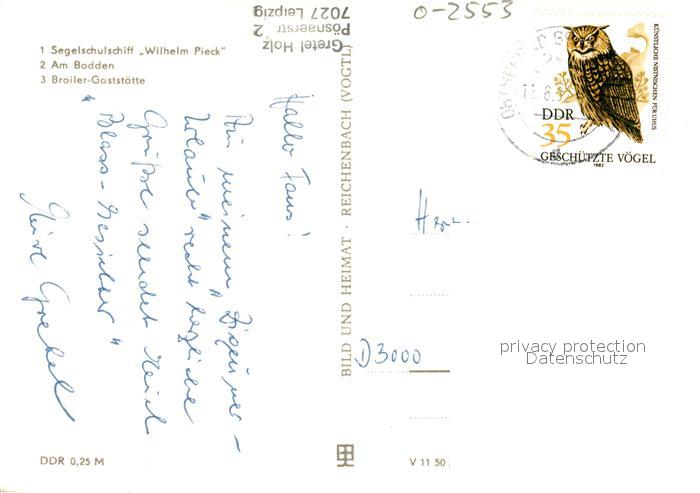 1 Segelschulschiff „Wilhelm Pieck"
2 Am Bodden
3 Broiler-Gaststätte
Gretel Holz
Pösnaerstr. 2
7027 Leipzig
0-2553
KÜNSTLICHE NISTNISCHEN FÜR UHUS
DDR
35
GESCHÜTZTE VÖGEL
1982
Hallo Hans!
Aus meinem „Zigeuner-
Urlaub" recht herzliche
Grüße sendet Euch
"Blass-Gesichter"
Eure Gretel
BILD UND HEIMAT · REICHENBACH (VOGTL)
D3000
privacy protection
Datenschutz
DDR 0,25 M
V 11 50